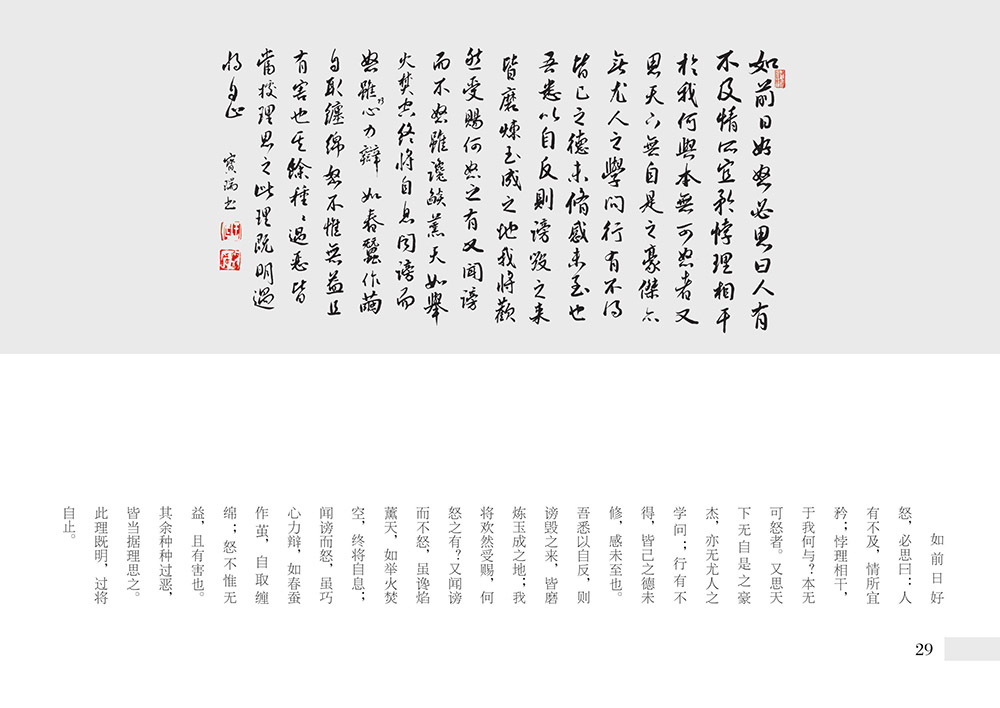 如前日好怒必思曰人有
不及情所宜矜悖理相干
於我何與本無可怒者又
思天下無自是之豪傑亦
無尤人之學問行有不得
皆己之德未脩感未至也
吾悉以自反則謗毀之来
皆磨煉玉成之地我將歡
然受賜何怒之有又聞謗
而不怒雖讒燄薰天如舉
火焚空終將自息聞謗而
怒雖巧心力辯如春蠶作繭
自取纏綿怒不惟無益且
有害也其餘種〻過惡皆
當據理思之此理既明過
将自止
寶瑞书
如前日好
怒，必思曰：人
有不及，情所宜
矜；悖理相干，
于我何与？本无
可怒者。又思天
下无自是之豪
杰，亦无尤人之
学问；行有不
得，皆己之德未
修，感未至也。
吾悉以自反，则
谤毁之来，皆磨
炼玉成之地；我
将欢然受赐，何
怒之有？又闻谤
而不怒，虽谗焰
薰天，如举火焚
空，终将自息；
闻谤而怒，虽巧
心力辩，如春蚕
作茧，自取缠
绵；怒不惟无
益，且有害也。
其余种种过恶，
皆当据理思之。
此理既明，过将
自止。
29